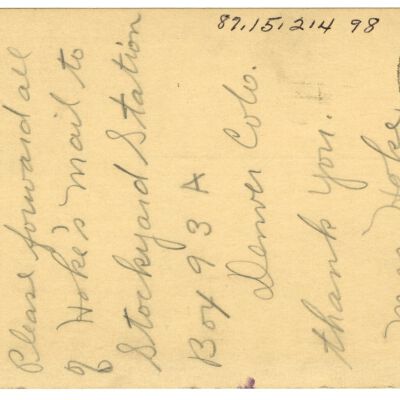 87.15.214 98
Please forward all
of Hoke's mail to
Stockyard Station
Box 93 A
Denver Colo.
thank you.
Mrs Hoke